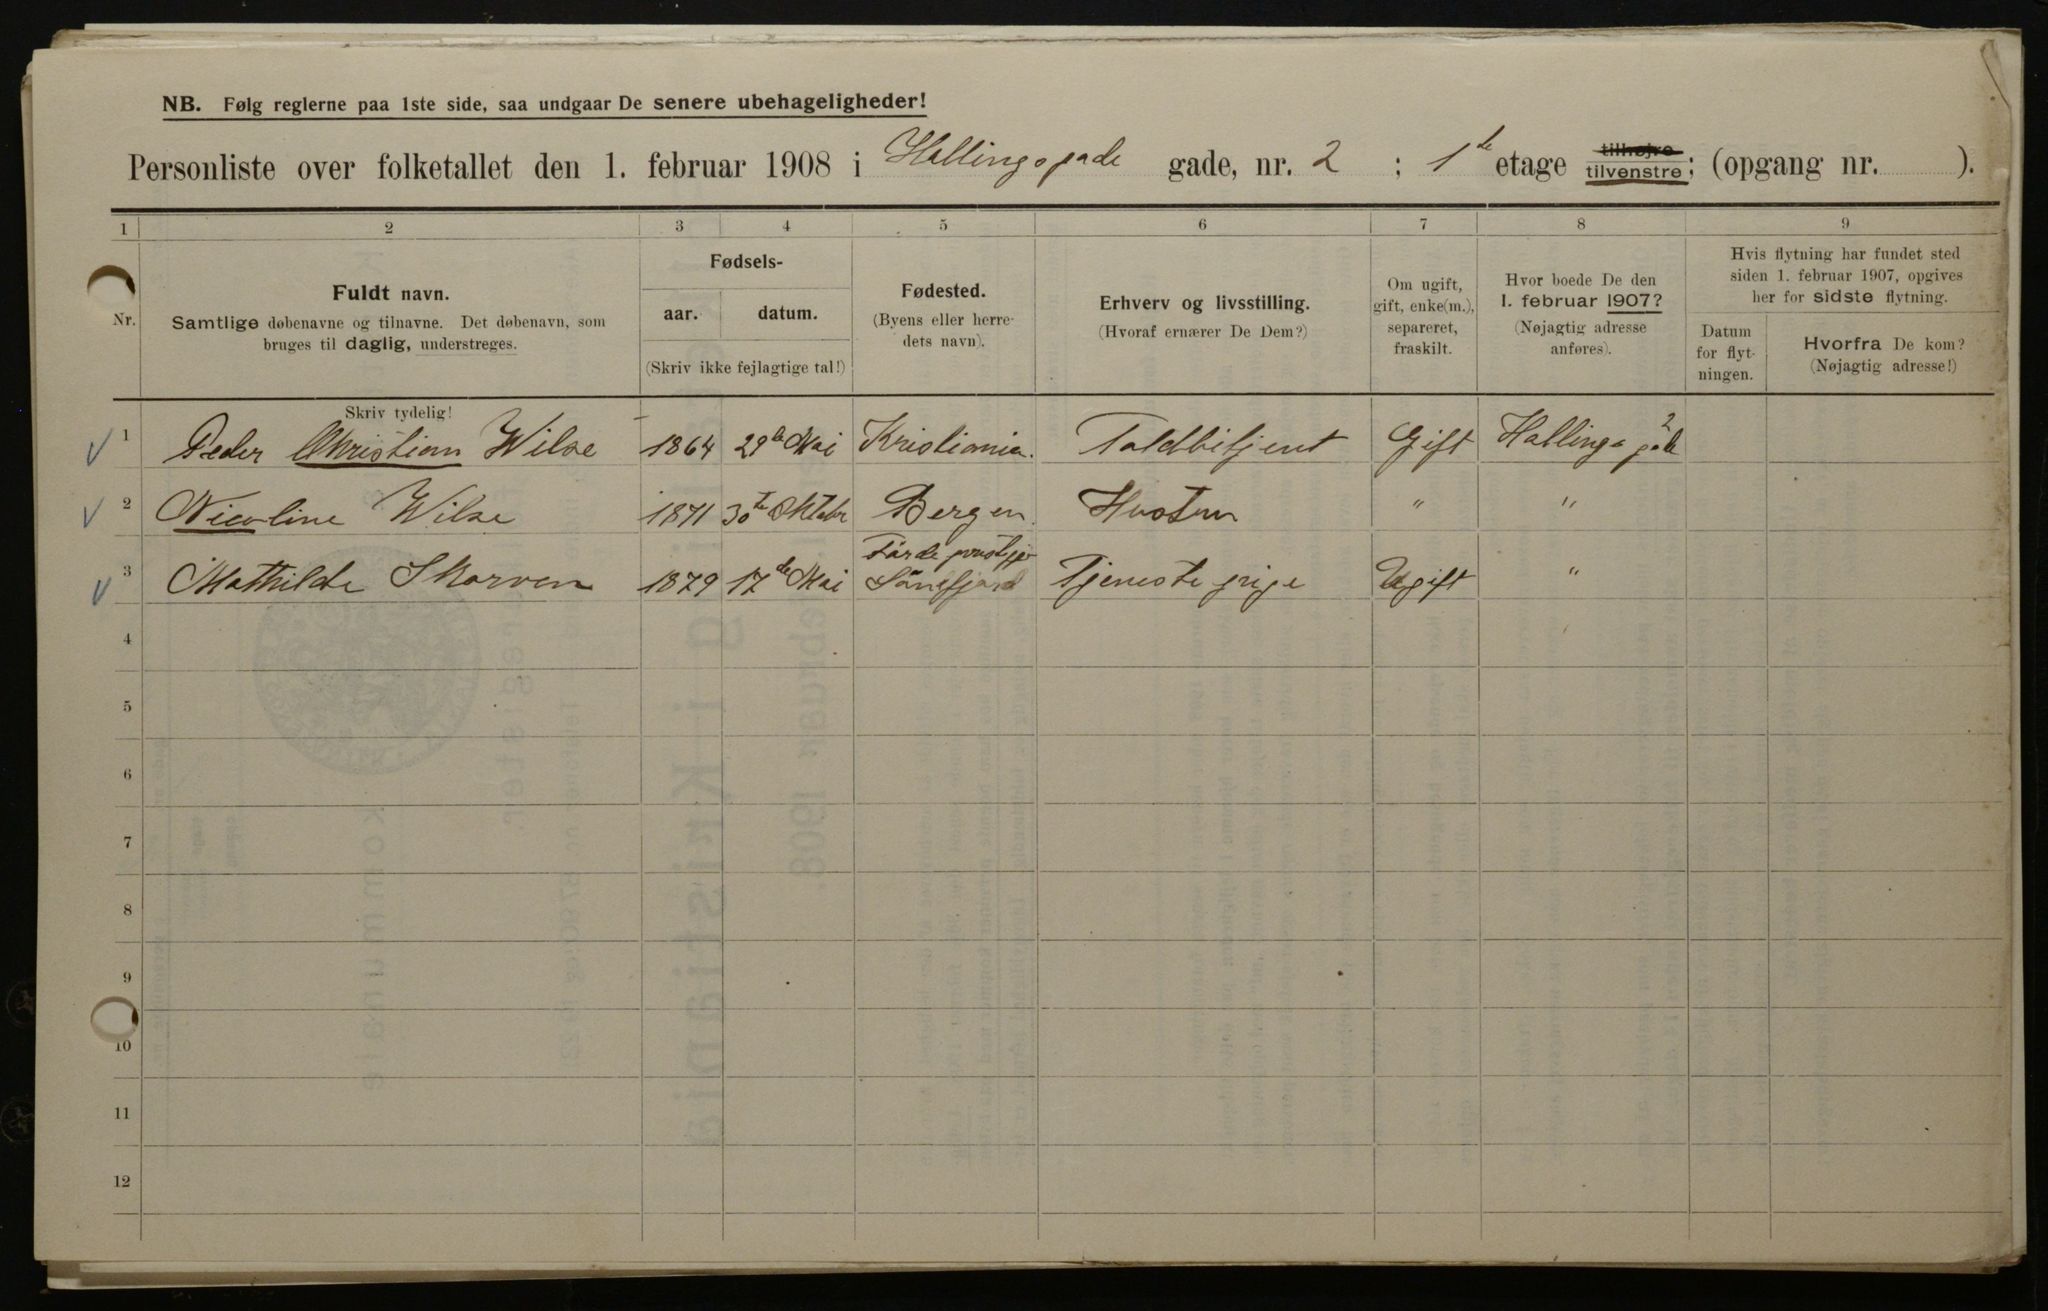 NB. Følg reglerne paa 1ste side, saa undgaar De senere ubehageligheder!
Personliste over folketallet den 1. februar 1908 i Hallingsgade gade, nr. 2 ; 1ste etage tilhøjre tilvenstre; (opgang nr. ).
1 2 3 4 5 6 7 8 9
Nr.
Fuldt navn.
Samtlige døbenavne og tilnavne. Det døbenavn, som
bruges til daglig, understreges.
Skriv tydelig!
Fødsels-
aar. datum.
(Skriv ikke fejlagtige tal!)
Fødested.
(Byens eller herre-
dets navn).
Erhverv og livsstilling.
(Hvoraf ernærer De Dem?)
Om ugift,
gift, enke(m.),
separeret,
fraskilt.
Hvor boede De den
1. februar 1907?
(Nøjagtig adresse
anføres).
Hvis flytning har fundet sted
siden 1. februar 1907, opgives
her for sidste flytning.
Datum
for flyt-
ningen.
Hvorfra De kom?
(Nøjagtig adresse!)
1 Peder Christian Wilse 1864 29de Mai Kristiania. Toldbetjent Gift Hallingsgade 2
2 Nicoline Wilse 1871 30te Oktober Bergen. Hustru " "
3 Mathilde Skorven 1879 17de Mai Førde Tjenestepige Ugift "
4
5
6
7
8
9
10
11
12